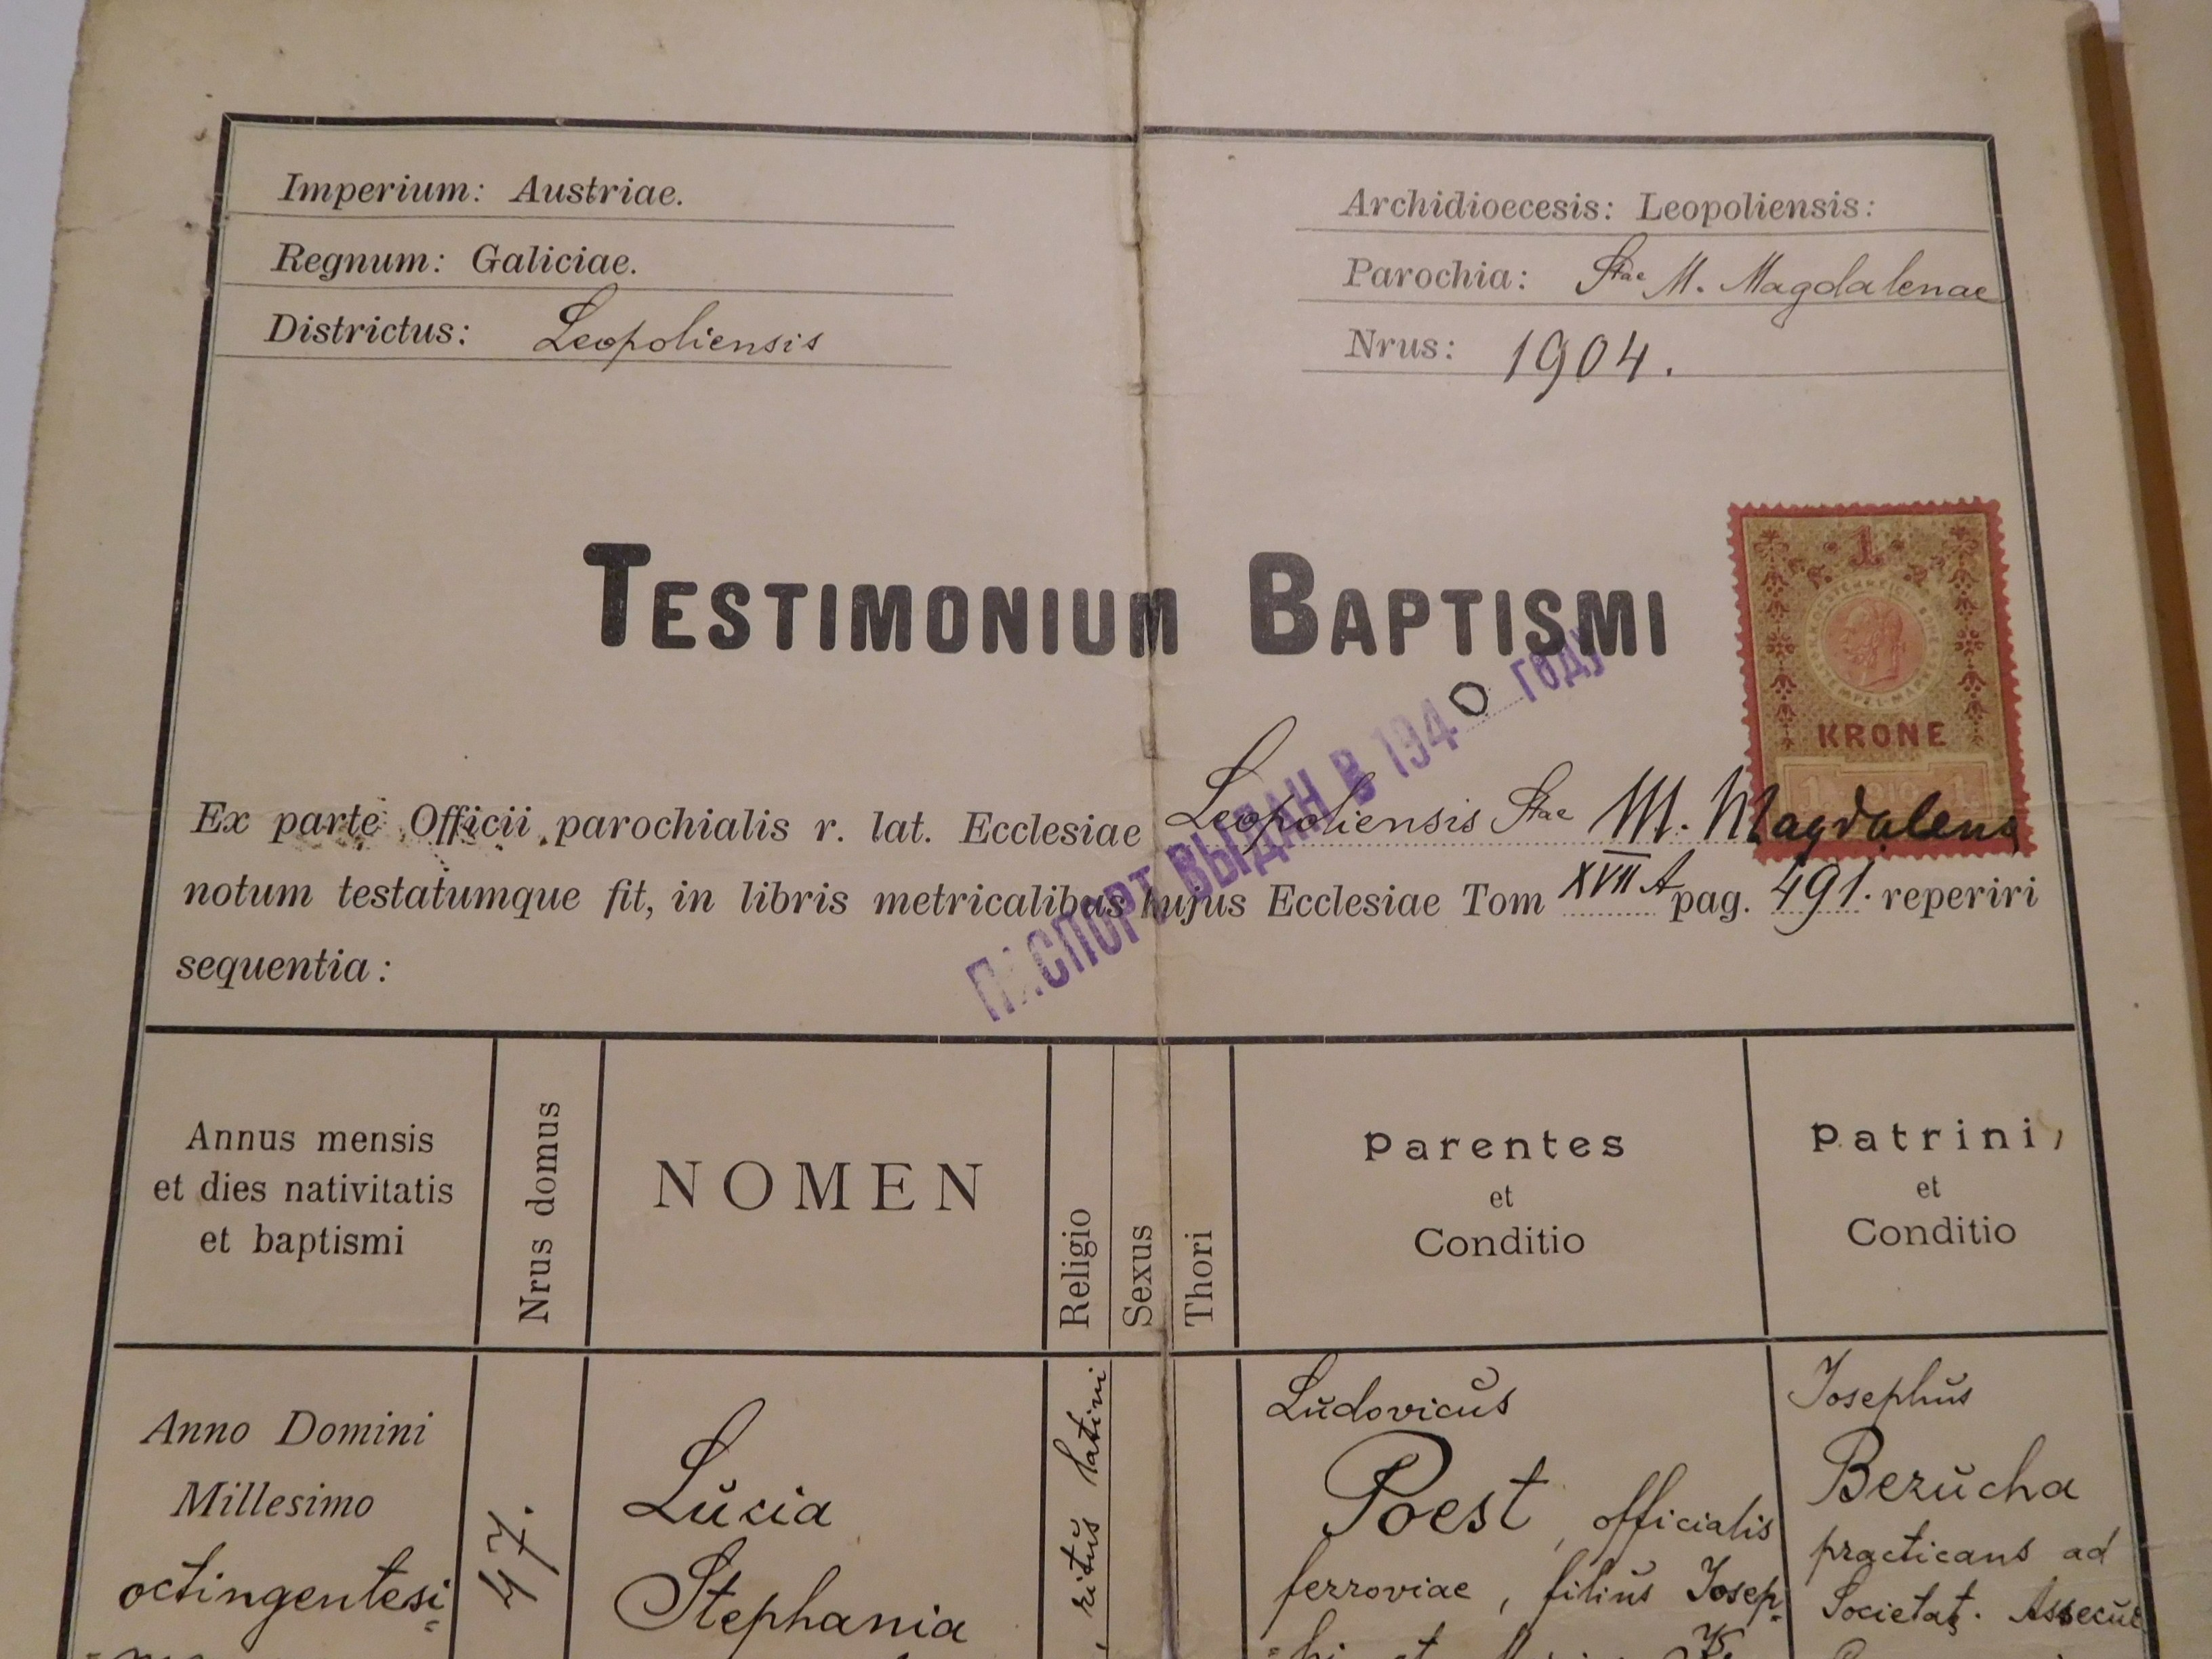 Imperium: Austriae.
Regnum: Galiciae.
Districtus: Leopoliensis
Archidioecesis: Leopoliensis:
Parochia: Stae M. Magdalenae
Nrus: 1904.
TESTIMONIUM BAPTISMI
1
KRONE
1. 1910 1.
ПАСПОРТ ВЫДАН В 1940 ГОДУ
Ex parte Officii parochialis r. lat. Ecclesiae Leopoliensis Stae M. Magdalena
notum testatumque fit, in libris metricalibus hujus Ecclesiae Tom XVII A pag. 491. reperiri
sequentia:
Annus mensis
et dies nativitatis
et baptismi
Nrus domus
NOMEN
Religio
Sexus
Thori
Parentes
et
Conditio
Patrini,
et
Conditio
Anno Domini
Millesimo
octingentesi=
47.
Lucia
Stephania
ritus latini
Ludovicus
Poest, officialis
ferroviae, filius Josep=
=hi et
Josephus
Bezucha
practicans ad
Societat. Assecur